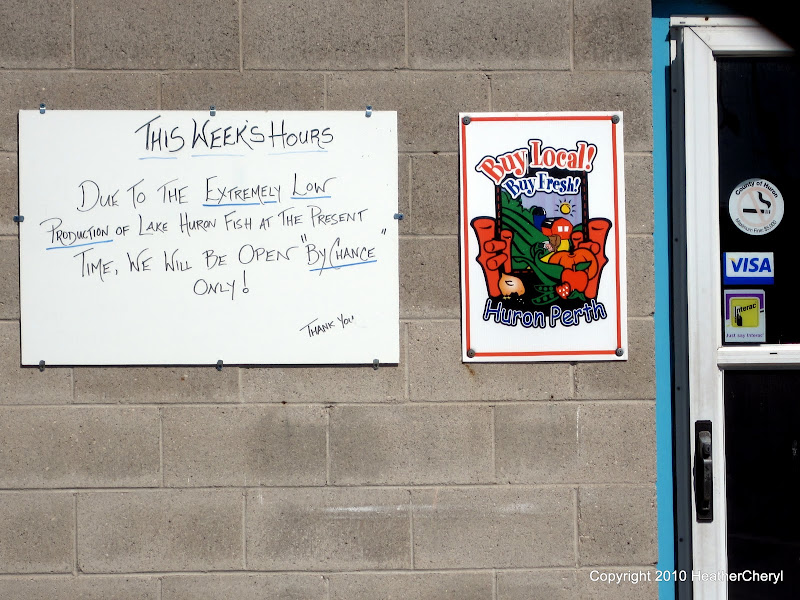 THIS WEEK'S HOURS
DUE TO THE EXTREMELY LOW
PRODUCTION OF LAKE HURON FISH AT THE PRESENT
TIME, WE WILL BE OPEN "BY CHANCE"
ONLY!
THANK YOU
Buy Local!
Buy Fresh!
Huron Perth
County of Huron
VISA
Interac
Copyright © 2010 HeatherCheryl